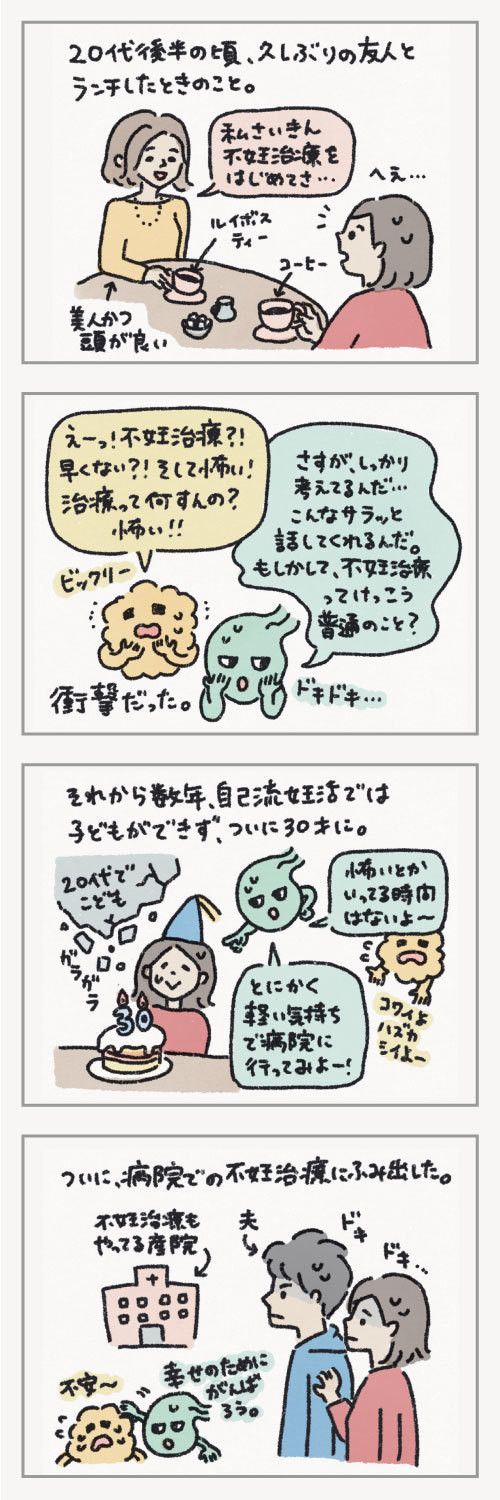 20代後半の頃、久しぶりの友人と
ランチしたときのこと。
私さいきん
不妊治療を
はじめてさ…
へぇ…
ルイボス
ティー
コーヒー
美人かつ
頭が良い
えーっ!不妊治療?!
早くない?!そして怖い!
治療って何すんの?
怖い!!
さすが、しっかり
考えてるんだ…
こんなサラッと
話してくれるんだ。
もしかして、不妊治療
ってけっこう
普通のこと?
ビックリー
衝撃だった。
ドキドキ…
それから数年、自己流妊活では
子どもができず、ついに30才に。
20代で
こども
ガラガラ
30
怖いとか
いってる時間
はないよ〜
コワイよ
ハズカ
シイよー
とにかく
軽い気持ち
で病院に
行ってみよー!
ついに、病院での不妊治療にふみ出した。
不妊治療も
やってる産院
夫
ドキ
ドキ…
不安〜
幸せのために
がんば
ろう。